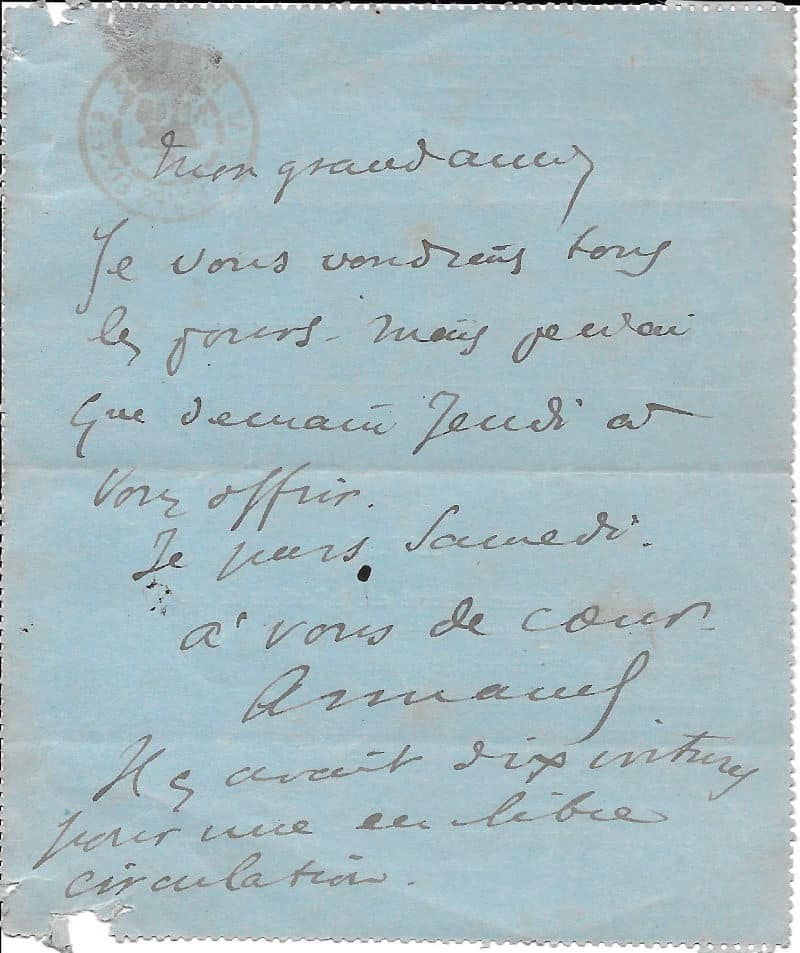 Mon grand ami,
Je vous voudrais tous
les jours. Mais je n'ai
que demain Jeudi à
vous offrir.
Je pars Samedi.
à vous de cœur.
Armand
Il y avait dix voitures
pour une en libre
circulation.